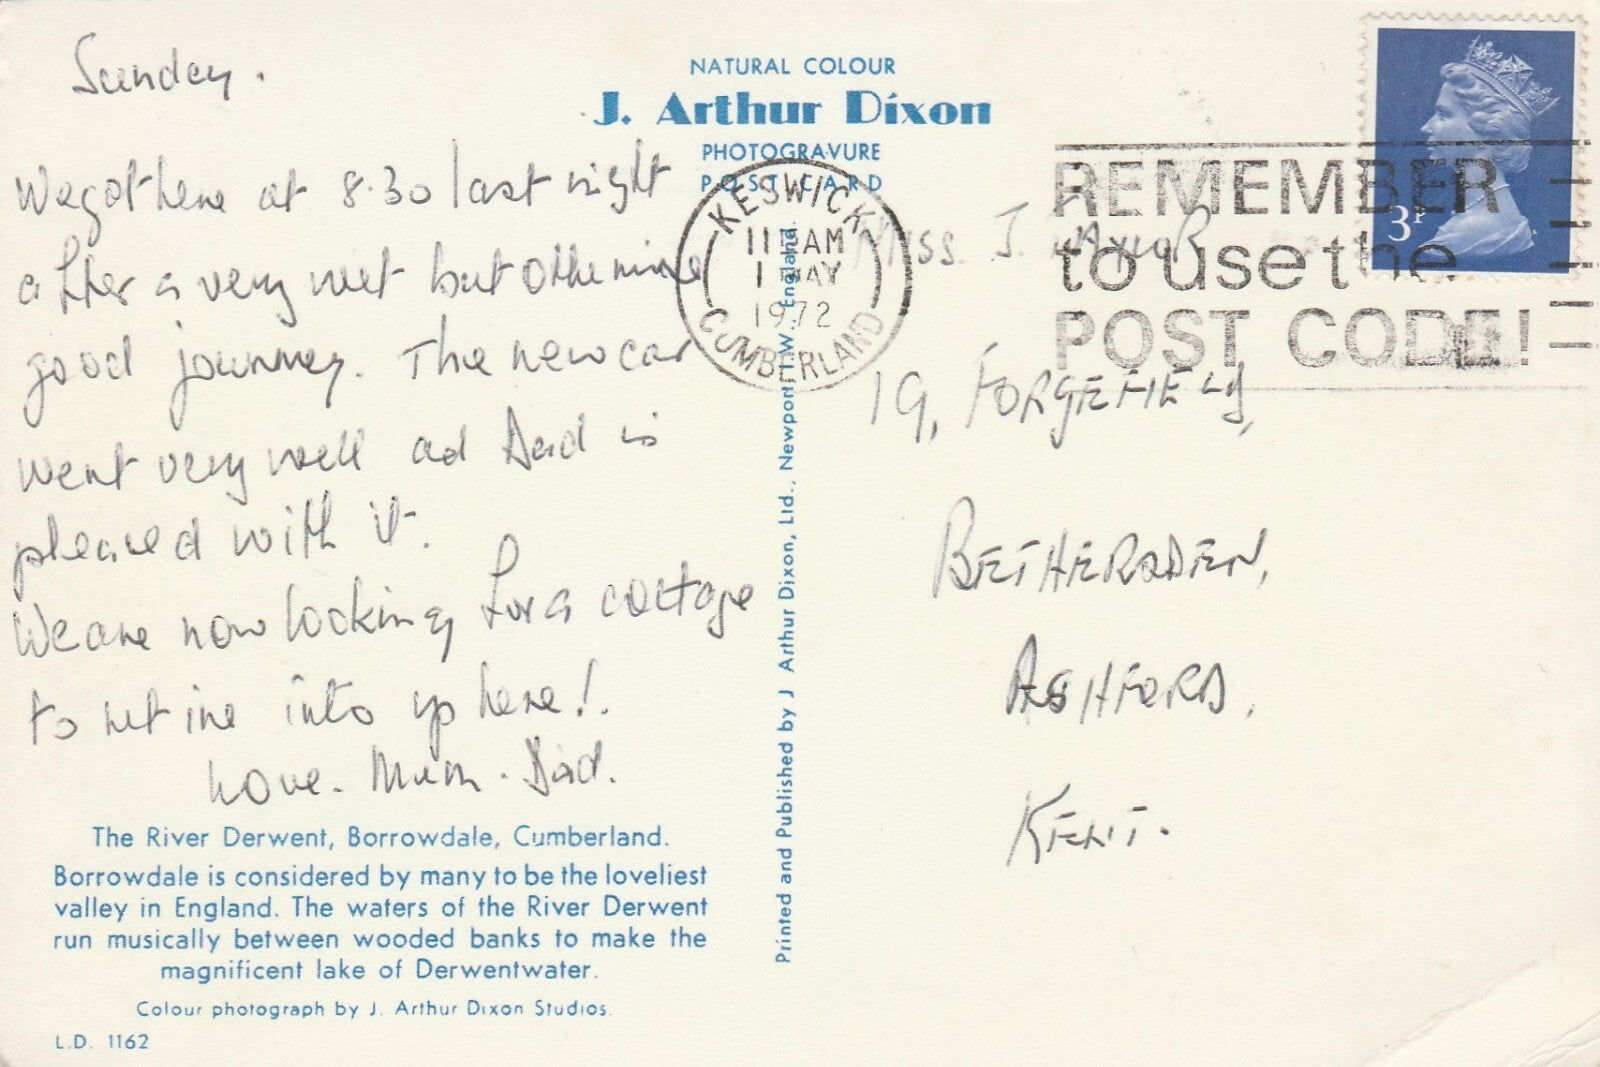 Sunday.
We got here at 8.30 last night
after a very wet but otherwise
good journey. The new car
went very well ad Dad is
pleased with it.
We are now looking for a cottage
to retire into up here!.
Love. Mum. Dad.
The River Derwent, Borrowdale, Cumberland.
Borrowdale is considered by many to be the loveliest
valley in England. The waters of the River Derwent
run musically between wooded banks to make the
magnificent lake of Derwentwater.
Colour photograph by J. Arthur Dixon Studios.
L.D. 1162
NATURAL COLOUR
J. Arthur Dixon
PHOTOGRAVURE
POST CARD
Printed and Published by J Arthur Dixon, Ltd., Newport, I.W., England.
KESWICK
11 AM
1 MAY
1972
CUMBERLAND
REMEMBER
to use the
POST CODE!
3P
MISS. J. TAYLOR
19, FORGEFIELD,
BETHERSDEN,
ASHFORD,
KENT.